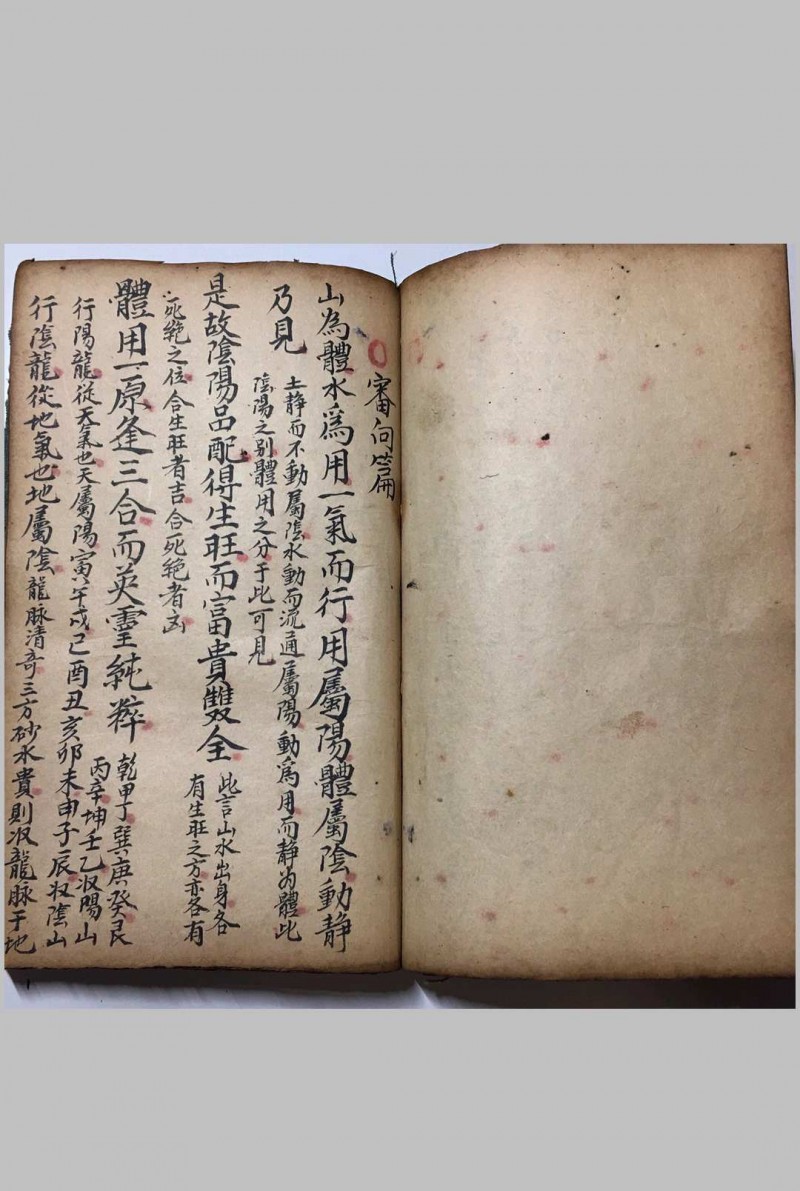 審向篇
山為體水為用一氣而行用屬陽體屬陰動静
乃見
土静而不動屬陰水動而流通屬陽動為用而静为體此
陰陽之别體用之分于此可見
是故陰陽品配得生旺而富貴雙全
此言山水出身各
有生旺之方亦各有
死絶之位合生旺者吉合死絶者凶
體用一原逢三合而英霊純粹
乾甲丁巽庚癸艮
丙辛坤壬乙収陽山
行陽龍従天氣也天屬陽寅午戌巳酉丑亥卯未申子辰収陰山
行陰龍從地氣也地屬陰龍脉清奇三方砂水貴則収龍脉于地